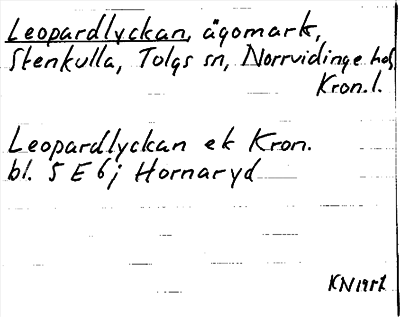 Leopardlyckan, ägomark,
Stenkulla, Tolgs sn, Norrvidinge hd,
Kron.l.
Leopardlyckan ek Kron.
bl. 5 E 6j Hornaryd